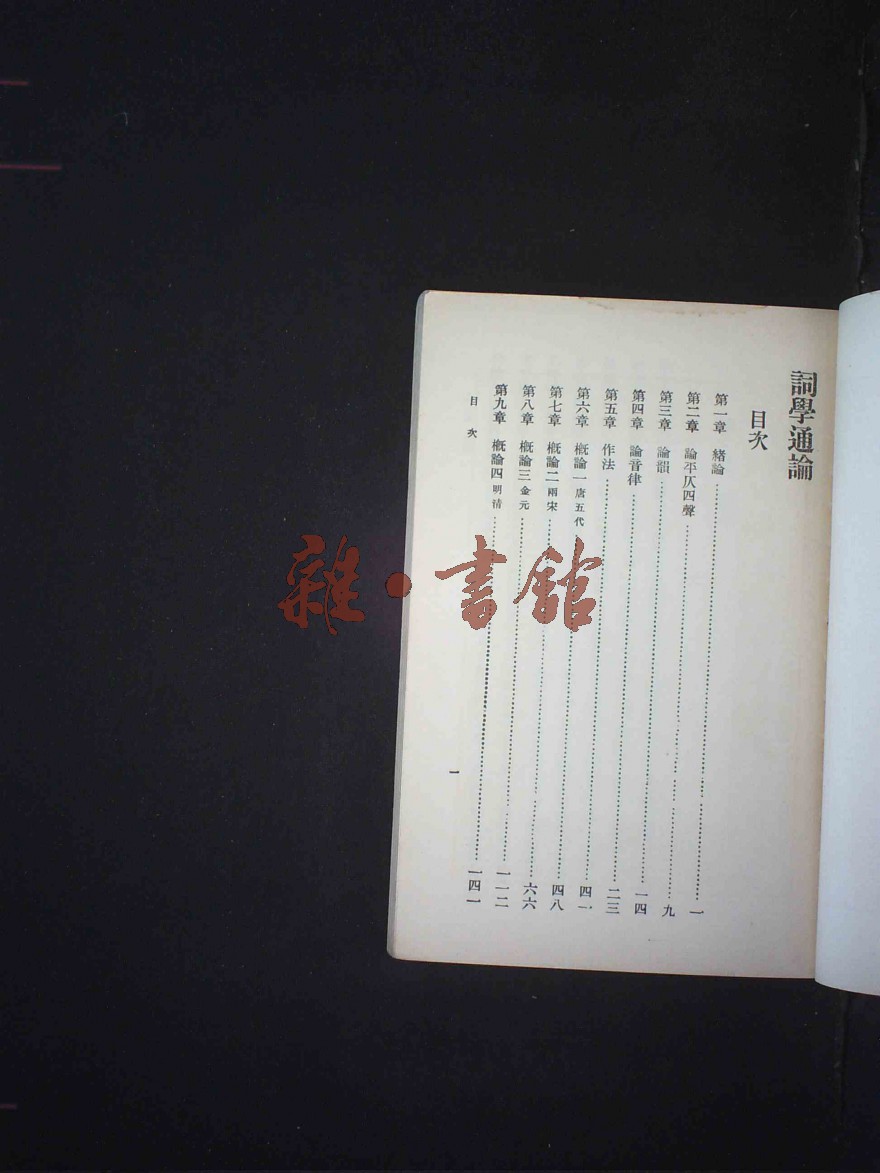 詞學通論
目次
第一章 緒論……一
第二章 論平仄四聲……九
第三章 論韻……一四
第四章 論音律……二三
第五章 作法……四一
第六章 概論一 唐五代……四八
第七章 概論二 兩宋……六六
第八章 概論三 金元……一一二
第九章 概論四 明清……一四一
目次
一
雜·書館